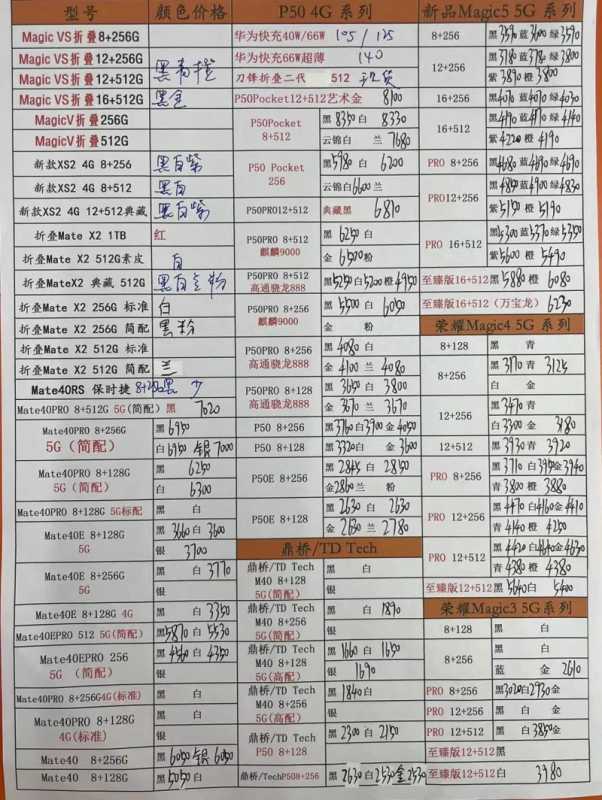 型号 颜色价格
Magic VS折叠8+256G
Magic VS折叠12+256G
Magic VS折叠12+512G 黑青橙
Magic VS折叠16+512G 黑金
MagicV折叠256G
MagicV折叠512G
新款XS2 4G 8+256 黑白紫
新款XS2 4G 8+512 黑白
新款XS2 4G 12+512典藏 黑白紫
折叠Mate X2 1TB 红
折叠Mate X2 512G素皮 白
折叠MateX2 典藏 512G
折叠Mate X2 256G 标准 白
折叠Mate X2 256G 简配 黑 粉
折叠Mate X2 512G 标准
折叠Mate X2 512G 简配 兰
Mate40RS 保时捷 黑 少
Mate40PRO 8+512G 5G(简配) 黑 7020
Mate40PRO 8+256G 5G（简配） 黑 6950
白 6950 银 7000
Mate40PRO 8+128G 5G（简配） 黑 6250
白 6300
Mate40PRO 8+128G 5G标配 黑 白
Mate40E 8+128G 5G 黑 3660 白 3600
银 3700
Mate40E 8+256G 5G 黑 白 3770
银
Mate40E 8+128G 4G 黑 白 3350
Mate40EPRO 512 5G(简配) 黑 5870 白 5530
Mate40EPRO 256 5G （简配） 黑 4560 白 4350
银
Mate40PRO 8+256G4G(标准) 黑 白
Mate40PRO 8+128G 4G(标准) 黑 白
银
Mate40 8+256G 黑 6050 银 6050
Mate40 8+128G 黑 5050 白
P50 4G 系列
华为快充40W/66W 105 / 125
华为快充66W超薄 140
刀锋折叠二代 512 现货
P50Pocket12+512艺术金 8100
P50Pocket 8+512 黑 8350 白 8330
云锦白 兰 7680
P50 Pocket 256 黑 5980 白 6200
云锦白 6600 兰
P50PRO12+512 典藏黑 6810
P50PRO 8+512 麒麟9000 黑 6250 白
金 粉
P50PRO 8+512 高通骁龙888 黑 5250 白 5200 橙 4950
P50PRO 8+256 麒麟9000 黑 5500 白 6050
金 粉
P50PRO 8+256 高通骁龙888 黑 4080 白
金 4100 兰 4080
P50PRO 8+128 高通骁龙888 黑 3650 白 3800
金 3670 兰 3670
P50 8+256 黑 3760 白 3900 金 4050
P50 8+128 黑 3320 白 金 3600
P50E 8+256 黑 2845 白 2850
金 2860 兰 粉
P50E 8+128 黑 2630 白 2630
金 2630 兰 2780
鼎桥/TD Tech
鼎桥/TD Tech M40 8+128 5G(简配) 黑 白
银
鼎桥/TD Tech M40 8+256 5G(简配) 黑 白 1890
银
鼎桥/TD Tech M40 8+128 5G(高配) 黑 1660 白 1650
银 1690
鼎桥/TD Tech M40 8+256 5G(高配) 黑 1840 白
银
鼎桥/TD Tech P50 8+128 黑 2300 白 2150
鼎桥/TechP508+256 黑 2630 白 2530 金 2530
新品Magic5 5G 系列
8+256 黑 3570 蓝 3600 绿 3570
12+256 黑 3780 蓝 3780 绿 3800
紫 3890 橙 3800
16+256 黑 4070 蓝 4070 绿 4030
16+512 黑 4170 蓝 4170 绿 4140
紫 4220 橙 4190
PRO 8+256 黑 4680 蓝 4690 绿 4690
PRO12+256 黑 4850 蓝 4900 绿 4830
紫 5150 橙 5190
PRO 16+512 黑 5300 蓝 5370 绿 5350
紫 5600 橙 5490
至臻版16+512 黑 5880 橙 6080
至臻版16+512（万宝龙） 6230
荣耀Magic4 5G 系列
8+128 黑 青
8+256 黑 3170 青 3125
白 金
12+256 黑 3470 青
白 3300 金 3180
12+512 黑 3930 青 3920
PRO 8+256 黑 3710 白 3950 金 3940
青 3800 橙 3880
PRO 12+256 黑 4470 白 4160 金 4410
青 4140 橙 4250
PRO 12+512 黑 4420 白 4640 金 4630
青 4380 橙 4380
至臻版12+512 黑 5640 白 5400
荣耀Magic3 5G 系列
8+128 黑 白
8+256 黑 白
蓝 金 2610
PRO 8+256 黑 3020 白 2930 金
PRO 12+256 黑 白 金
PRO 12+512 黑 白 3850 金
至臻版12+512 黑
至臻版12+512 白 3980